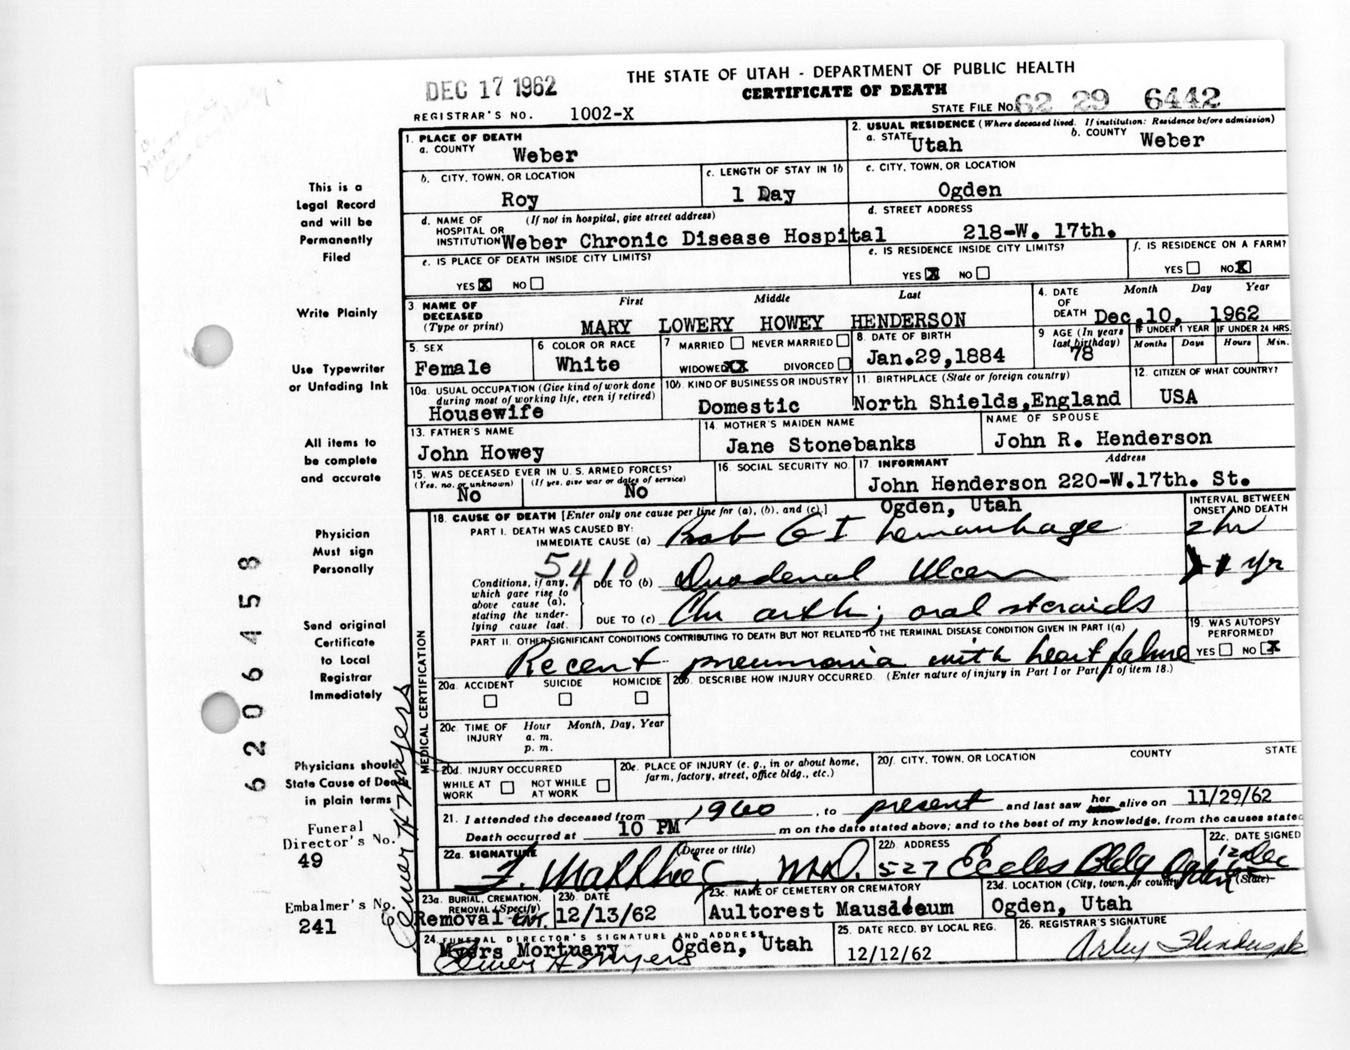 DEC 17 1962
THE STATE OF UTAH - DEPARTMENT OF PUBLIC HEALTH
CERTIFICATE OF DEATH
REGISTRAR'S NO. 1002-X
STATE FILE No. 62 29 6442
1. PLACE OF DEATH
a. COUNTY Weber
2. USUAL RESIDENCE (Where deceased lived. If institution: Residence before admission)
a. STATE Utah b. COUNTY Weber
b. CITY, TOWN, OR LOCATION
Roy
c. LENGTH OF STAY IN 1b
1 Day
c. CITY, TOWN, OR LOCATION
Ogden
d. NAME OF (If not in hospital, give street address)
HOSPITAL OR
INSTITUTION Weber Chronic Disease Hospital
d. STREET ADDRESS
218-W. 17th.
e. IS PLACE OF DEATH INSIDE CITY LIMITS?
YES X NO
e. IS RESIDENCE INSIDE CITY LIMITS?
YES X NO
f. IS RESIDENCE ON A FARM?
YES NO X
3 NAME OF DECEASED (Type or print)
First Middle Last
MARY LOWERY HOWEY HENDERSON
4. DATE OF DEATH
Month Day Year
Dec. 10, 1962
5. SEX
Female
6 COLOR OR RACE
White
7 MARRIED NEVER MARRIED
WIDOWED XX DIVORCED
8. DATE OF BIRTH
Jan.29,1884
9 AGE (In years last birthday)
78
IF UNDER 1 YEAR
Months Days
IF UNDER 24 HRS.
Hours Min.
10a. USUAL OCCUPATION (Give kind of work done during most of working life, even if retired)
Housewife
10b. KIND OF BUSINESS OR INDUSTRY
Domestic
11. BIRTHPLACE (State or foreign country)
North Shields,England
12. CITIZEN OF WHAT COUNTRY?
USA
13. FATHER'S NAME
John Howey
14. MOTHER'S MAIDEN NAME
Jane Stonebanks
NAME OF SPOUSE
John R. Henderson
15. WAS DECEASED EVER IN U. S. ARMED FORCES?
(Yes, no, or unknown) (If yes, give war or dates of service)
No No
16. SOCIAL SECURITY NO.
17 INFORMANT Address
John Henderson 220-W.17th. St.
Ogden, Utah
18. CAUSE OF DEATH [Enter only one cause per line for (a), (b), and (c).]
INTERVAL BETWEEN ONSET AND DEATH
PART I. DEATH WAS CAUSED BY:
IMMEDIATE CAUSE (a) Prob G I hemorrhage 2 hr
5410
Conditions, if any, which gave rise to above cause (a), stating the underlying cause last.
DUE TO (b) Duodenal Ulcer 1 yr
DUE TO (c) Chr arth; oral steroids
PART II. OTHER SIGNIFICANT CONDITIONS CONTRIBUTING TO DEATH BUT NOT RELATED TO THE TERMINAL DISEASE CONDITION GIVEN IN PART I(a)
Recent pneumonia with heart failure
19. WAS AUTOPSY PERFORMED?
YES NO X
20a. ACCIDENT SUICIDE HOMICIDE
20b. DESCRIBE HOW INJURY OCCURRED. (Enter nature of injury in Part I or Part II of item 18.)
20c. TIME OF INJURY
Hour Month, Day, Year
a. m.
p. m.
20d. INJURY OCCURRED
WHILE AT WORK NOT WHILE AT WORK
20e. PLACE OF INJURY (e. g., in or about home, farm, factory, street, office bldg., etc.)
20f. CITY, TOWN, OR LOCATION COUNTY STATE
21. I attended the deceased from 1960, to present and last saw her alive on 11/29/62
Death occurred at 10 PM m on the date stated above; and to the best of my knowledge, from the causes stated
22a. SIGNATURE (Degree or title)
M.D.
22b. ADDRESS
527 Eccles Bldg Ogden (State)
22c. DATE SIGNED
12 Dec
23a. BURIAL, CREMATION, REMOVAL (Specify)
Removal
23b. DATE
12/13/62
23c. NAME OF CEMETERY OR CREMATORY
Aultorest Mausoleum
23d. LOCATION (City, town, or county)
Ogden, Utah
24. FUNERAL DIRECTOR'S SIGNATURE AND ADDRESS
Myers Mortuary Ogden, Utah
Elmer H Myers
25. DATE RECD. BY LOCAL REG.
12/12/62
26. REGISTRAR'S SIGNATURE
MEDICAL CERTIFICATION
This is a
Legal Record
and will be
Permanently
Filed
Write Plainly
Use Typewriter
or Unfading Ink
All items to
be complete
and accurate
Physician
Must sign
Personally
Send original
Certificate
to Local
Registrar
Immediately
Physicians should
State Cause of Death
in plain terms
Funeral
Director's No.
49
Embalmer's No.
241
Elmer H Myers
6206458